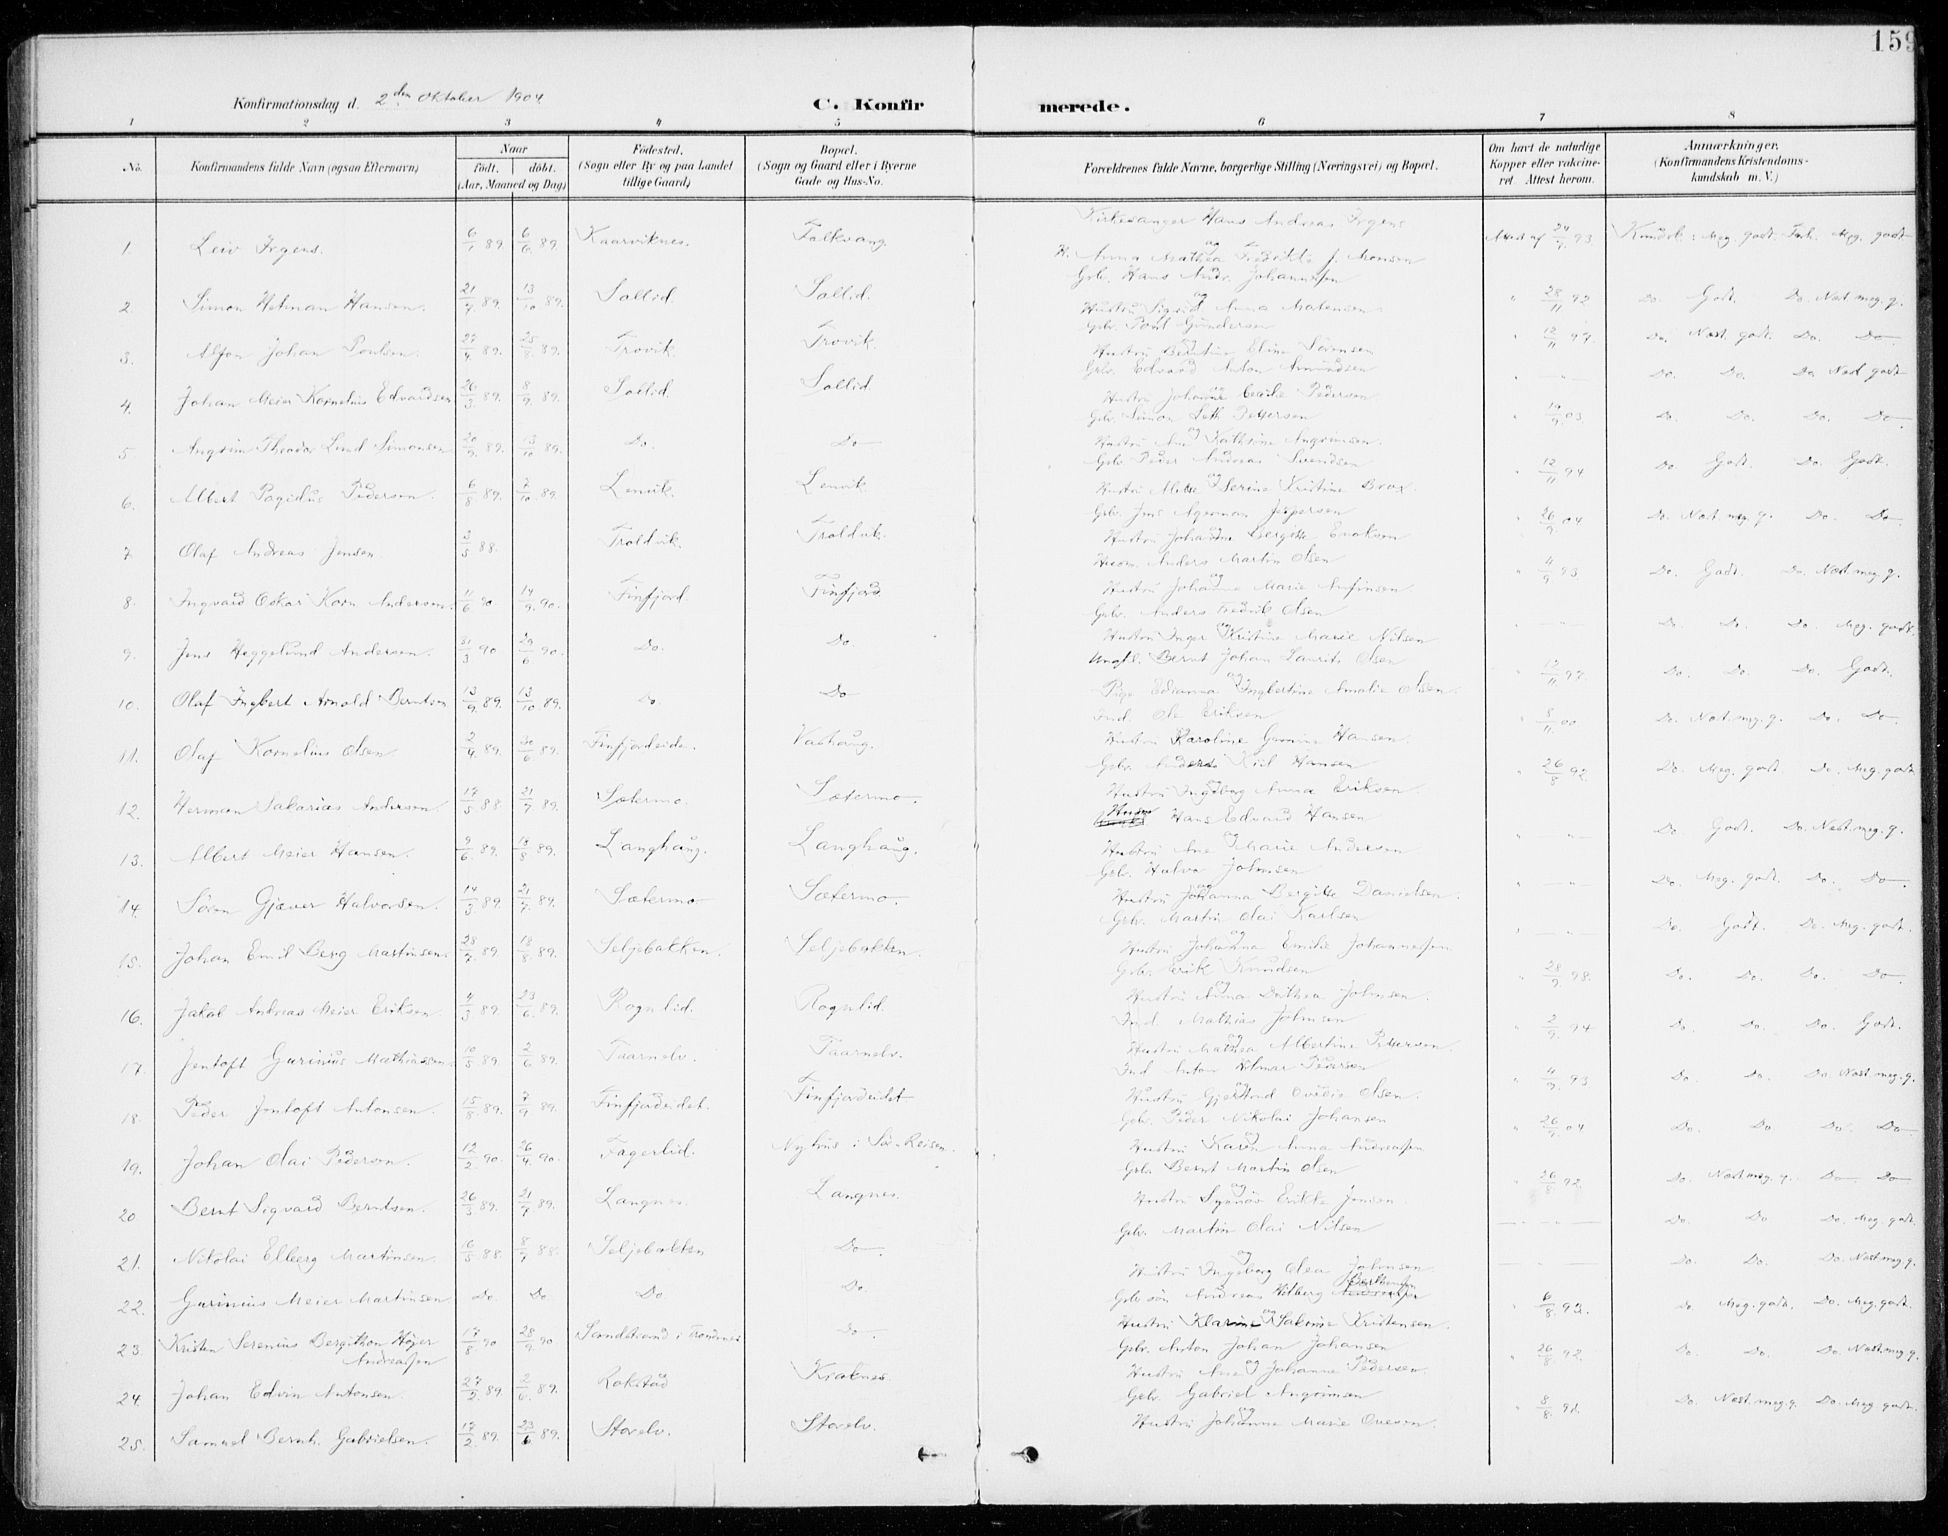 159
Konfirmationsdag d. 2den Oktober 1904.
C. Konfirmerede.
1 2 3 4 5 6 7 8
No. Konfirmandens fulde Navn (ogsaa Efternavn) Naar født. døbt. (Aar, Maaned og Dag) Fødested. (Sogn eller By og paa Landet tillige Gaard) Bopæl. (Sogn og Gaard eller i Byerne Gade og Hus-No. Forældrenes fulde Navne, borgerlige Stilling (Næringsvei) og Bopæl. Om havt de naturlige Kopper eller vakcineret. Attest herom. Anmærkninger. (Konfirmandens Kristendomskundskab m. V.)
1. Leiv Irgens. 89. 6/6 89. Kaarviknes. Folkvang. Kirkesanger Hans Andreas Irgens og H. Anna Mathea Fredrikke f. Monsen Attest af 93. Kundsk: Meg. godt. Forh. Meg. godt
2. Simon Hetman Hansen. 89. 13/10 89. Sollid. Sollid. Gbr. Hans Andr. Johannessen og Hustru Sigrid Anna Matensen " 28/11 92 Do. Godt. Do. Næst meg. g.
3. Alfon Johan Poulsen. 89. 25/8 89. Trovik. Trovik. Gbr. Poul Gundersen og Hustru Berntine Eline Sørensen " 12/11 97. Do. Næst godt. Do. Do.
4. Johan Meier Kornelius Edvardsen 26/3 89. 8/9 89. Sollid. Sollid Gbr. Edvard Anton Amundsen og Hustru Johanne Cecilie Pedersen " — " — Do. Do. Do. Næst godt
5 Angrim Theodor Lind Simonsen 20/9 89. 13/10 89. Do. Do Gbr. Simon Seth Pettersen og Hustru Ane Kathrine Angrimsen. " 19/9 03. Do. Do. Do. Do.
6. Albert Pedersen. 6/8 89. 7/10 89. Lenvik. Lenvik Gbr. Peder Andreas Svendsen og Hustru Serine Kristine Brox. " 12/11 94 Do Godt. Do. Godt.
7. Olaf Andreas Jensen. 3/5 88. Troldvik. Troldvik. Gbr. Jens Agerman Jespersen Hustru Johanne Bergitte Enoksen " 26/9 04 Do. Næst meg. g. Do. Do.
8. Ingvard Oskar Korn. Andersen. 11/6 90. 14/9 90. Finfjord. Finfjord Husm. Anders Martin Olsen og Hustru Johanna Marie Anfinsen " 4/9 93. Do. Godt. Do. Næst meg. g.
9. Jens Heggelund Andersen. 31/3 90 29/6 90. Do. Do. Gbr. Anders Fredrik Olsen og Hustru Inger Kristine Marie Nilsen " — " — Do. Do. Do. Meg. godt.
10. Olaf Ingbert Arnold Berntsen 13/9 89. 13/10 89. Do. Do Ungkl. Bernt Johan Laurits Olsen og Pige Edianna Ingbertine Amalie Olsen. " 12/11 97. Do. Do. Do. Godt.
11. Olaf Kornelius Olsen. 2/4 89. 30/6 89. Finfjordeide. Vashaug. Ind. Ole Eriksen Hustru Karoline Hansen. " 8/11 00 Do. Næst. meg. g. Do. Do.
12. Herman Sakarias Andersen. 17/5 88 21/7 89. Sætermo. Sætermo. Gbr. Anders Kiil Hansen og Hustru Ingeborg Anna Eriksen. " 26/8 92. Do. Meg. godt. Do. Meg. godt
13. Albert Meier Hansen. 9/6. 89. 18/8 89. Langhaug. Langhaug. Husm. Hans Edvard Hansen og Hustru Ane Marie Andersen " " Do. Godt. Do. Næst meg. g.
14. Søren Gjæver Halvorsen. 14/3 89. 21/7 89. Sætermo Sætermo. Gbr. Halvor Johnsen og Hustru Johanna Bergitte Danielsen. " — " — Do. Meg. godt. Do. Do.
15. Johan Emil Berg Martinsen. 89. 18/8 89. Seljebakken. Seljebakken. Gbr. Martin Olai Karlsen og Hustru Johanna Emilie Johannessen " — " — Do. Godt. Do. Meg. godt.
16. Jakob Andreas Meier Eriksen. 4/3 89. 23/6 89. Rognlid. Rognlid. Gbr. Erik Knudsen og Hustru Anna Dorthea Johnsen. " 28/9 98. Do. Do. Do. Do.
17. Jentoft Gurinius Mathiassen. 10/5 89. 2/6 89. Taarnelv. Taarnelv. Ind. Mathias Johnsen og Hustru Mathea Albertine Pettersen. " 2/9 94 Do. Do. Do. Godt.
18. Peder Jentoft Antonsen. 15/8 89. 7/9 89. Finfjordeidet. Finfjordeidet Ind Anton Hilmar Pedersen og Hustru Gjertrud Ovidie Olsen. " 4/9 93 Do. Do. Do. Næst meg. g.
19. Johan Olai Pedersen. 12/2 90. 26/4 90. Fagerlid. Nyhus i Sør-Reisen. Gbr. Peder Nikolai Johansen og Hustru Karen Anna Andreassen " 26/9 04 Do. Do Do. Do.
20 Bernt Sigvard Berntsen. 26/3 89. 21/7 89. Langnes. Langnes. Gbr. Bernt Martin Olsen og Hustru Synnøv Erikke Jensen. " 26/8 92. Do. Næst. meg. g. Do Do
21. Nikolai Elberg Martinsen. 16/5 88. 8/7 88. Seljebakken Do. Gbr. Martin Olai Nilsen og Hustru Ingeborg Olea Johnsen — " — " — Do. Do Do. Meg. godt.
22. Gurinius Meier Martinsen Do. Do. Do Do. Do. Do. Do. Næst meg. g.
23. Kristen Serenius Bergithon Høyer Andreassen 17/8 90 28/9 90 Sandstrand i Trondenes Do. Gbr. søn Andreas Hilberg Berthensen og Hustru Klarine Jakobine Kristensen. " 6/8 92. Do Meg. godt. Do. Meg. godt.
24. Johan Edvin Antonsen. 27/2 89. 2/6. 89. Rokstad Kraknes. Gbr. Anton Johan Johansen og Hustru Ane Johanne Pedersen " 26/8 92. Do. Do. Do. Næst. meg. g.
25. Samuel Bernh. Gabrielsen. 17/2 89. 23/6 89. Storelv. Storelv. Gbr. Gabriel Angrimsen og Hustru Johanne Marie Ovesen. " 8/8. 92. Do. Næst. meg. g. Do. Meg. godt